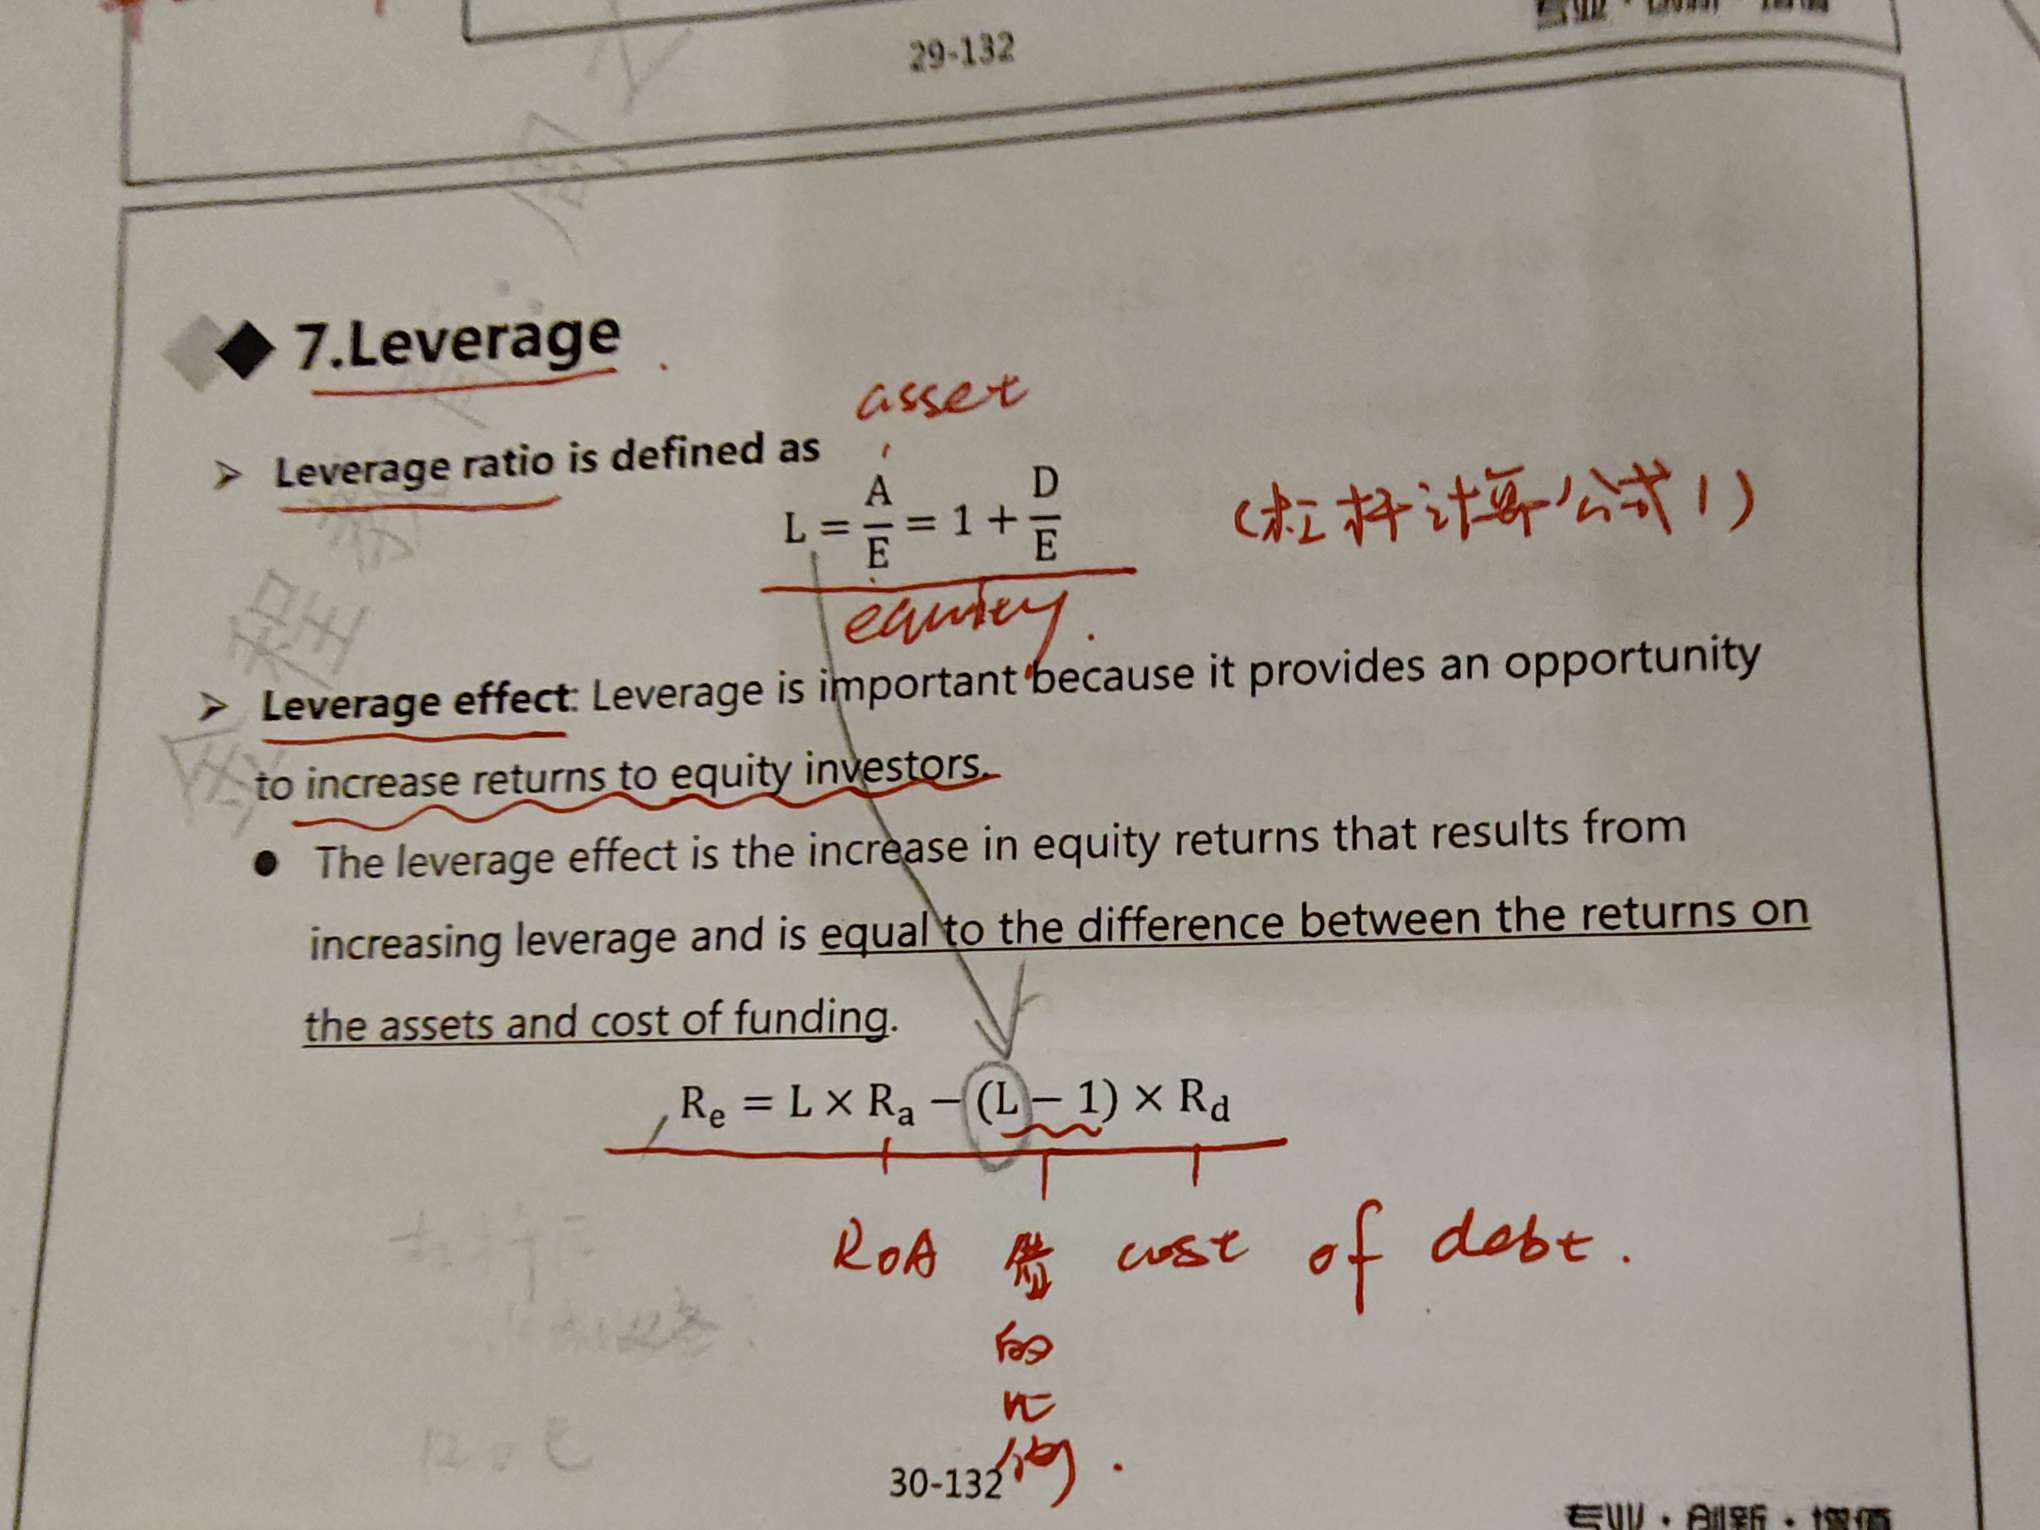 专业·创新·增值
29-132
7.Leverage
asset
Leverage ratio is defined as
L = A/E = 1 + D/E
(杠杆计算公式1)
equity.
Leverage effect: Leverage is important because it provides an opportunity
to increase returns to equity investors.
The leverage effect is the increase in equity returns that results from
increasing leverage and is equal to the difference between the returns on
the assets and cost of funding.
Re = L × Ra − (L − 1) × Rd
ROA
cost of debt.
的
比
例.
30-132
专业·创新·增值